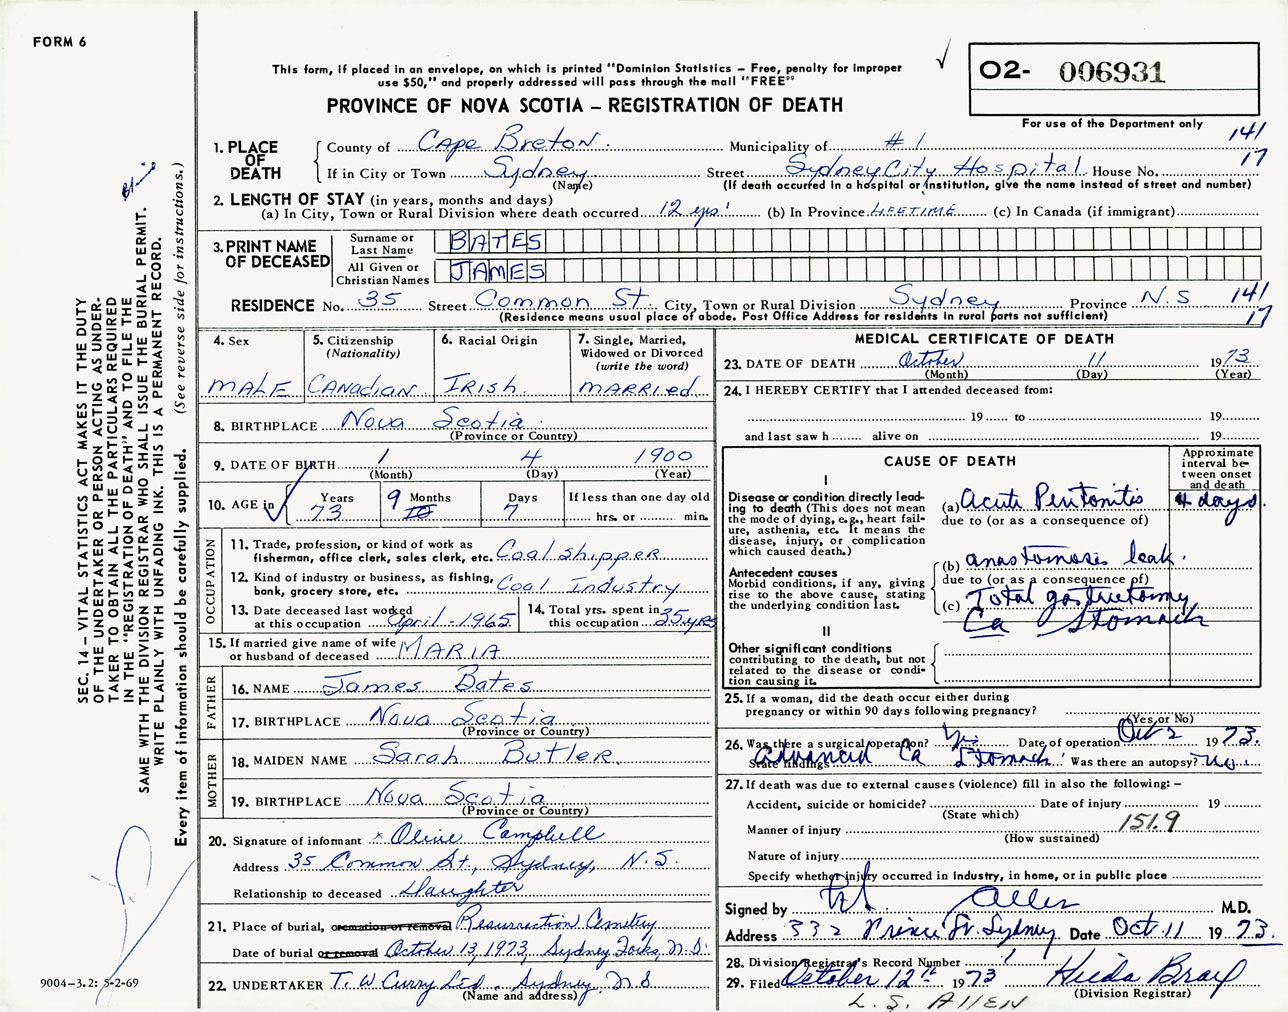 FORM 6
This form, if placed in an envelope, on which is printed "Dominion Statistics – Free, penalty for improper
use $50," and properly addressed will pass through the mail "FREE"
PROVINCE OF NOVA SCOTIA – REGISTRATION OF DEATH
✓
O2- 006931
For use of the Department only
141
17
1. PLACE OF DEATH
County of Cape Breton. Municipality of #1
If in City or Town Sydney Street Sydney City Hospital House No.
(Name) (If death occurred in a hospital or institution, give the name instead of street and number)
2. LENGTH OF STAY (in years, months and days)
(a) In City, Town or Rural Division where death occurred 12 yrs (b) In Province LIFETIME (c) In Canada (if immigrant)
3. PRINT NAME OF DECEASED
Surname or Last Name BATES
All Given or Christian Names JAMES
RESIDENCE No. 35 Street Common St. City, Town or Rural Division Sydney Province N.S 141
(Residence means usual place of abode. Post Office Address for residents in rural parts not sufficient) 17
4. Sex
MALE
5. Citizenship
(Nationality)
CANADIAN
6. Racial Origin
IRISH
7. Single, Married,
Widowed or Divorced
(write the word)
MARRIED
8. BIRTHPLACE Nova Scotia
(Province or Country)
9. DATE OF BIRTH 1 4 1900
(Month) (Day) (Year)
10. AGE in Years 73 Months 9 10 Days 7 If less than one day old
hrs. or min.
OCCUPATION
11. Trade, profession, or kind of work as
fisherman, office clerk, sales clerk, etc. Coal shipper
12. Kind of industry or business, as fishing,
bank, grocery store, etc. Coal Industry
13. Date deceased last worked
at this occupation April - 1965
14. Total yrs. spent in
this occupation 35 yrs
15. If married give name of wife
or husband of deceased MARIA
FATHER
16. NAME James Bates
17. BIRTHPLACE Nova Scotia
(Province or Country)
MOTHER
18. MAIDEN NAME Sarah Butler
19. BIRTHPLACE Nova Scotia
(Province or Country)
20. Signature of informant x Olive Campbell
Address 35 Common St., Sydney, N.S.
Relationship to deceased Daughter
21. Place of burial, cremation or removal Resurrection Cemetery
Date of burial or removal October 13, 1973, Sydney Forks, N.S.
22. UNDERTAKER T. W. Curry Ltd. Sydney, N S
(Name and address)
MEDICAL CERTIFICATE OF DEATH
23. DATE OF DEATH October 11 1973
(Month) (Day) (Year)
24. I HEREBY CERTIFY that I attended deceased from:
19 to 19
and last saw h alive on 19
CAUSE OF DEATH
Approximate
interval be-
tween onset
and death
I
Disease or condition directly lead-
ing to death (This does not mean
the mode of dying, e.g., heart fail-
ure, asthenia, etc. It means the
disease, injury, or complication
which caused death.)
(a) Acute Peritonitis 4 days.
due to (or as a consequence of)
Antecedent causes
Morbid conditions, if any, giving
rise to the above cause, stating
the underlying condition last.
(b) anastomosis leak.
due to (or as a consequence of)
(c) Total gastrectomy
Ca Stomach
II
Other significant conditions
contributing to the death, but not
related to the disease or condi-
tion causing it.
25. If a woman, did the death occur either during
pregnancy or within 90 days following pregnancy?
(Yes or No)
26. Was there a surgical operation? Yes Date of operation Oct 2 1973.
State findings Advanced Ca Stomach Was there an autopsy? No.
27. If death was due to external causes (violence) fill in also the following: –
Accident, suicide or homicide? Date of injury 19
(State which)
Manner of injury 151.9
(How sustained)
Nature of injury
Specify whether injury occurred in industry, in home, or in public place
Signed by Allen M.D.
Address 332 Prince St Sydney Date Oct 11 1973.
28. Division Registrar's Record Number 1
29. Filed October 12th 1973 Hilda Bray
(Division Registrar)
L. S. ALLEN
SEC. 14 – VITAL STATISTICS ACT MAKES IT THE DUTY
OF THE UNDERTAKER OR PERSON ACTING AS UNDER-
TAKER TO OBTAIN ALL THE PARTICULARS REQUIRED
IN THE "REGISTRATION OF DEATH" AND TO FILE THE
SAME WITH THE DIVISION REGISTRAR WHO SHALL ISSUE THE BURIAL PERMIT.
WRITE PLAINLY WITH UNFADING INK. THIS IS A PERMANENT RECORD.
Every item of information should be carefully supplied. (See reverse side for instructions.)
9004-3.2: 5-2-69